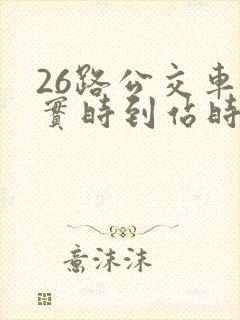 26路公交車
實時到佔時
意沫沫